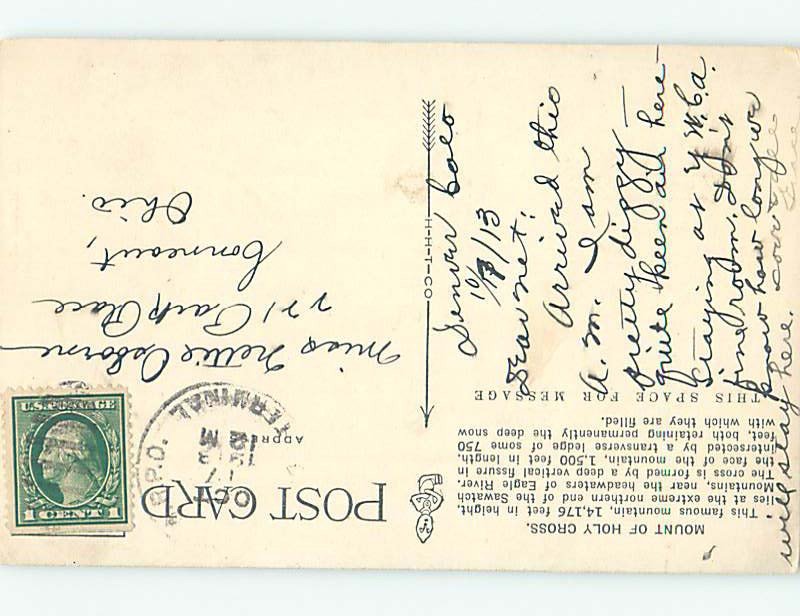 MOUNT OF HOLY CROSS.
This famous mountain, 14,176 feet in height,
lies at the extreme northern end of the Sawatch
Mountains, near the headwaters of Eagle River.
The cross is formed by a deep vertical fissure in
the face of the mountain, 1,500 feet in length,
intersected by a transverse ledge of some 750
feet, both retaining permanently the deep snow
with which they are filled.
THIS SPACE FOR MESSAGE
Denver Colo
10/17/13
Dear net:
Arrived this
a.m. I am
pretty dizzy—
quite keen air here—
Staying at Y.W.C.A.
fine room. Don't
know how long we
will stay here.
Love
Grace
H-H-T-CO
POST CARD
ADDRE
OCT
17
12 M
1913
TERMINAL
R.P.O.
U.S. POSTAGE
1 CENT 1
Miss Nettie Osborne
221 Park Place
Conneaut,
Ohio.